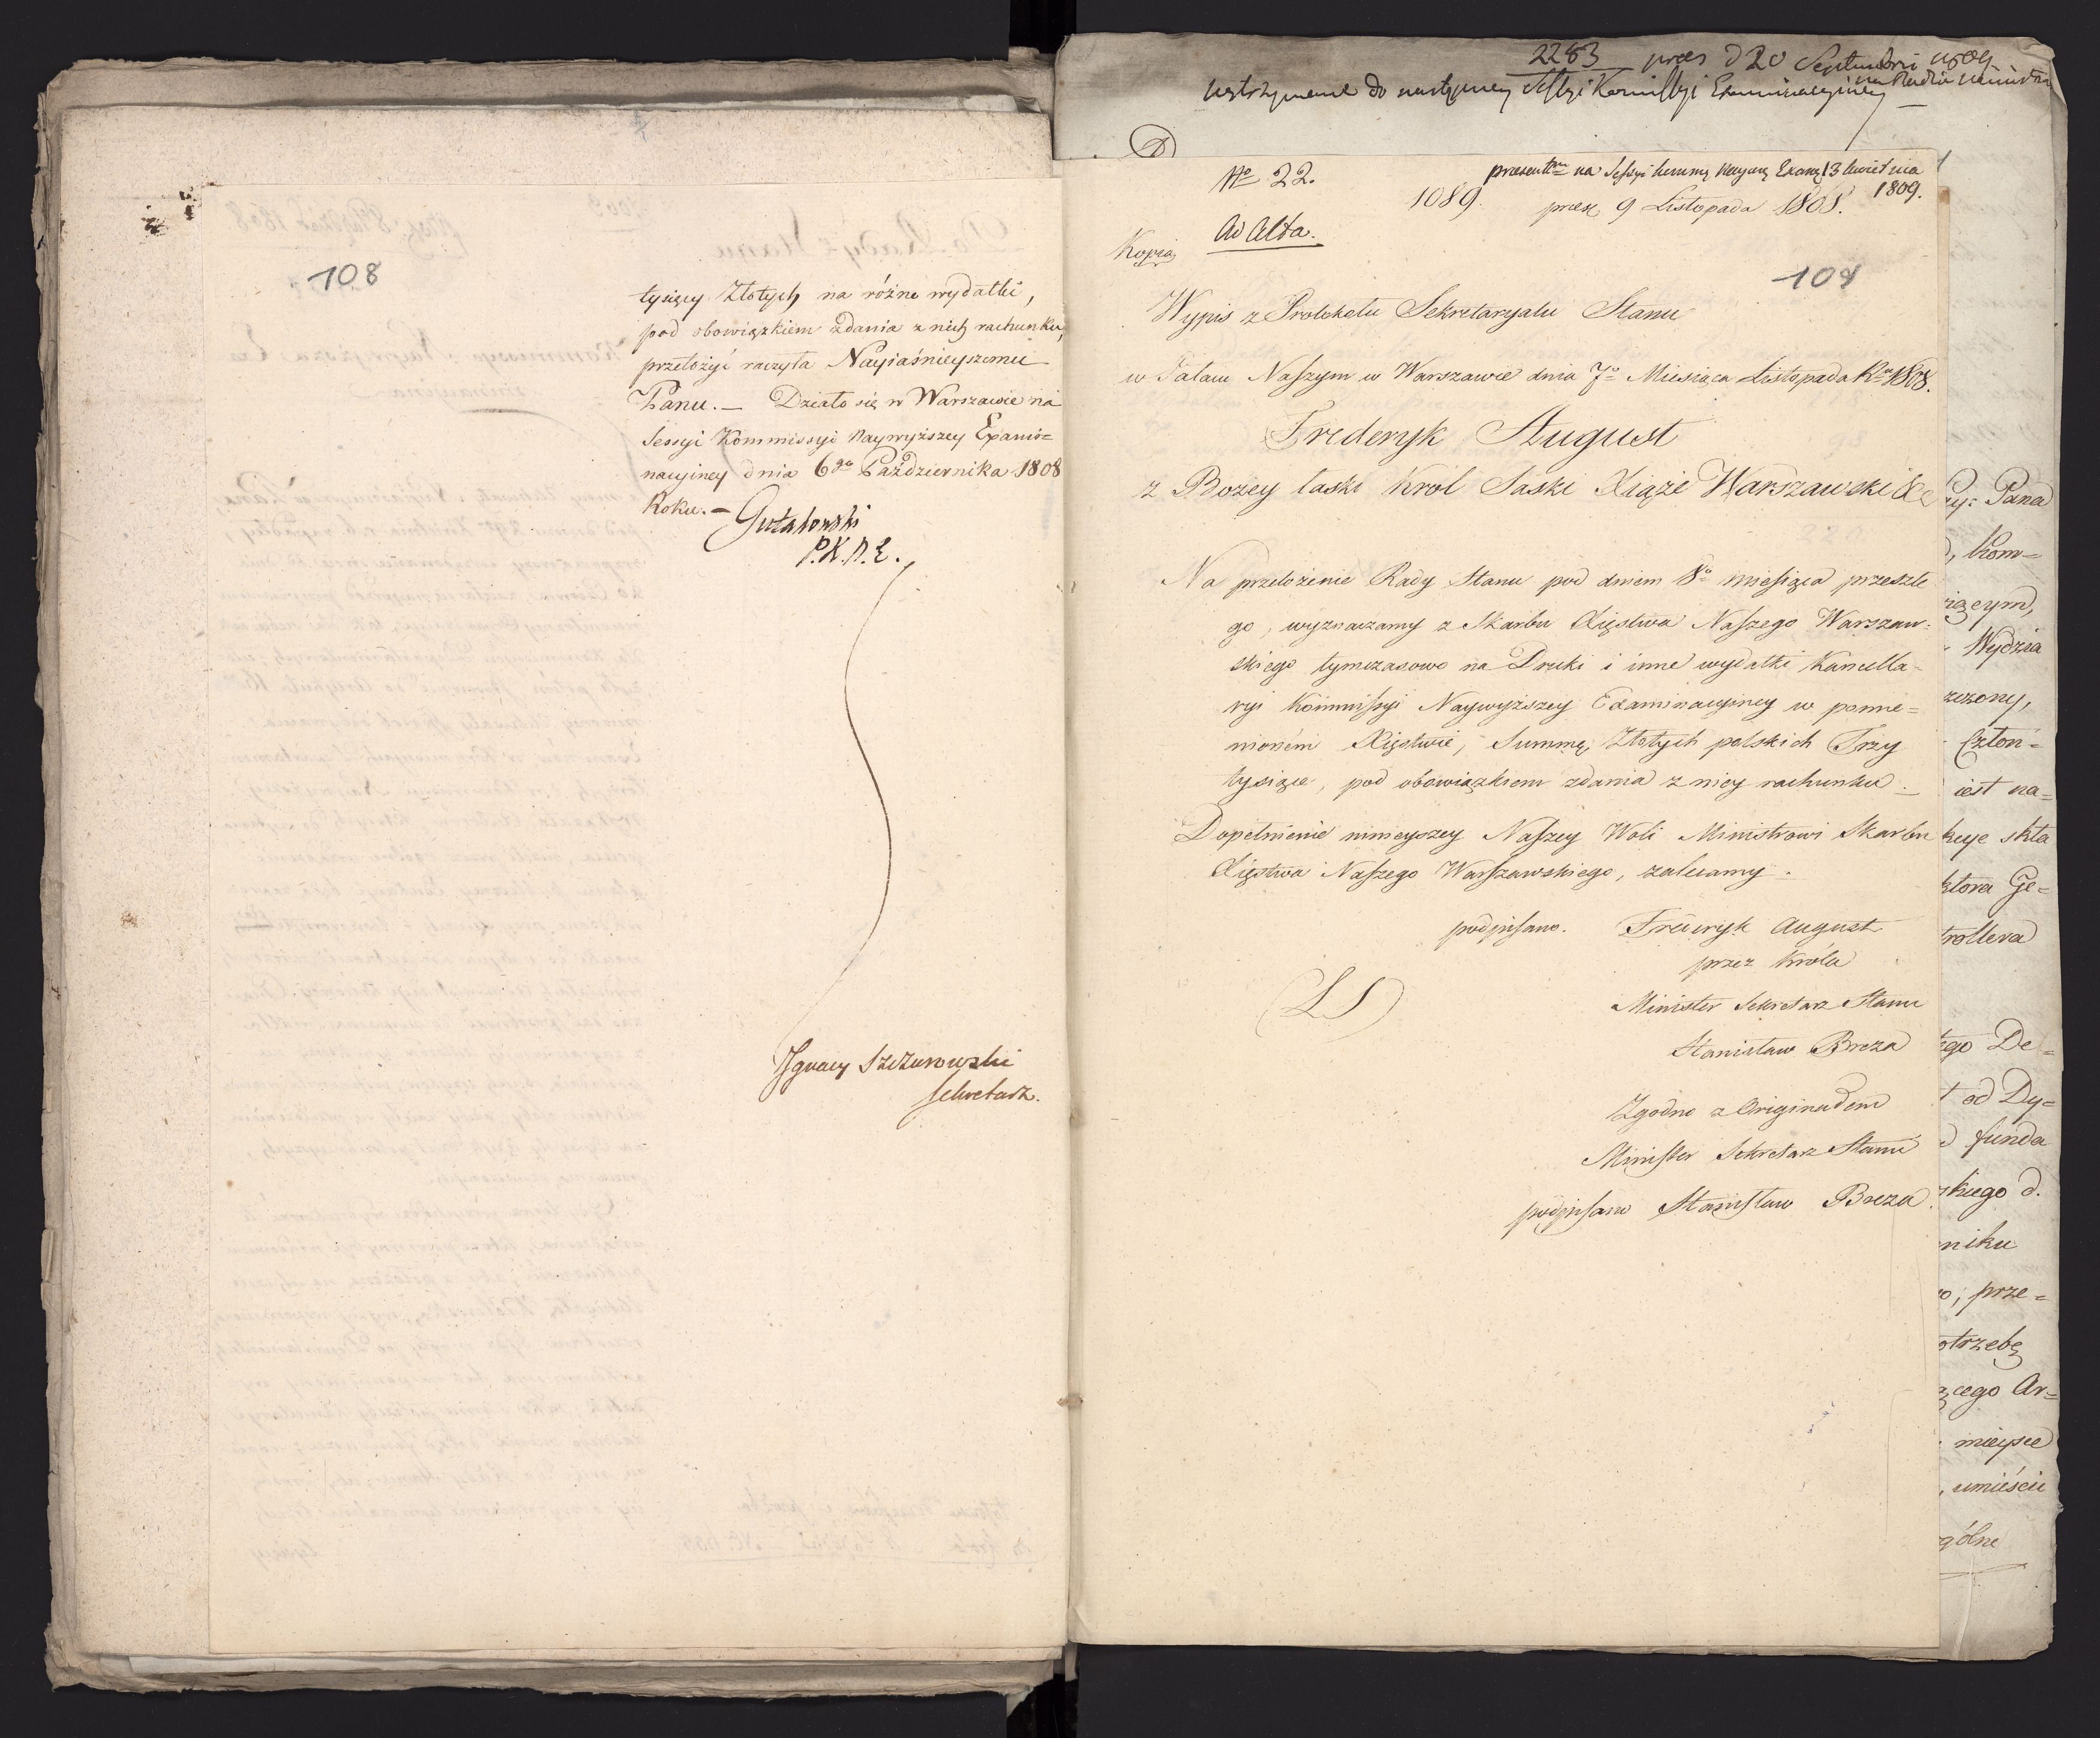 108
tysięcy Złotych na różne wydatki,
pod obowiązkiem zdania z nich rachunku,
przełożyć raczyła Nayiaśnieyszemu
Panu. — Działo się w Warszawie na
Sessyi Kommissyi Naywyższey Exami=
nacyiney dnia 6go Października 1808
Roku. —
Gutakowski
P.K.N.E.
Ignacy Szczurowski
Sekretarz.
2283 pres d 20 Septembri 1809
wstrzymanie do następney Sessyi Kommissyi Examinacyiney
No 22.
1089.
presentm na Sessyi Kommis Naywyż Exam 13 Kwietnia
1809.
prez 9 Listopada 1808.
Ad Acta.
Kopia
109
Wypis z Protokołu Sekretaryatu Stanu
w Pałacu Naszym w Warszawie dnia 7o Miesiąca Listopada Rku 1808.
Fryderyk August
z Bożey łaski Król Saski Xiąże Warszawski &c
Na przełożenie Rady Stanu pod dniem 8o miesiąca przeszłe
go, wyznaczamy z Skarbu Xięstwa Naszego Warszaw=
skiego tymczasowo na Druki i inne wydatki Kancella=
ryi Kommissyi Naywyższey Examinacyiney w pomie=
nioném Xięstwie, Summę Złotych polskich Trzy
tysiące, pod obowiązkiem zdania z niey rachunku. —
Dopełnienie ninieyszey Naszey Woli Ministrowi Skarbu
Xięstwa Naszego Warszawskiego, zalecamy.
podpisano. Fryderyk August
przez Króla
(LS)
Minister Sekretarz Stanu
Stanisław Breza
Zgodno z Originałem
Minister Sekretarz Stanu
podpisano Stanisław Breza
Pana
Kom=
Wydzia
Człon=
iest na=
Ge=
De=
od Dy=
funda
prze=
Ar=
mieysce
umieścić